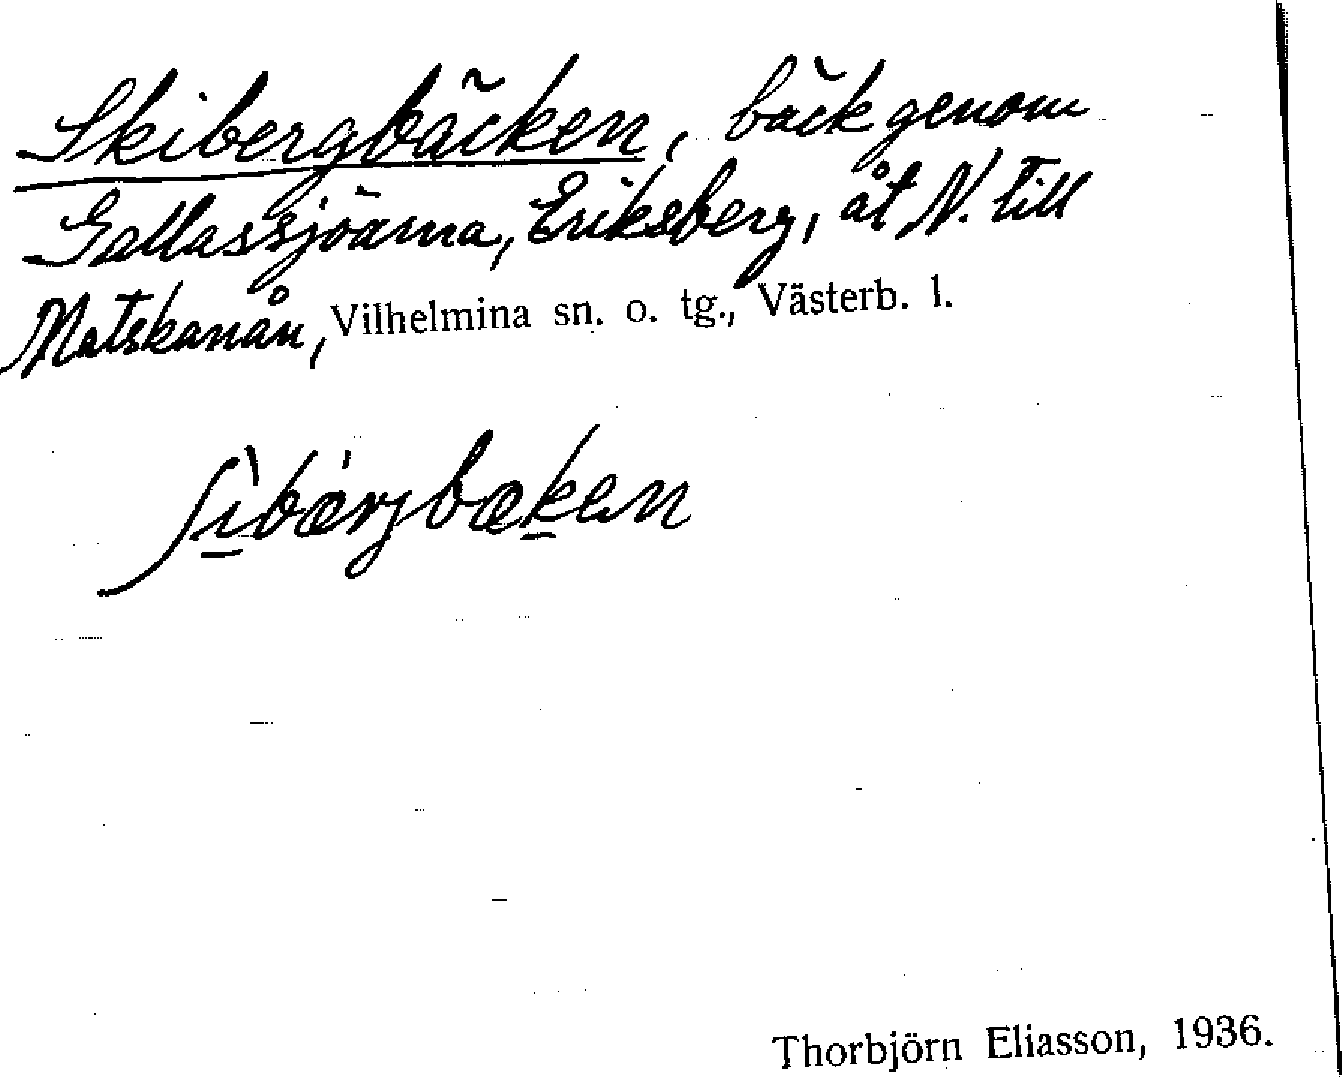 Skibergbäcken, bäck genom
Gallassjöarna, Eriksberg, åt N. till
Matskanån, Vilhelmina sn. o. tg., Västerb. l.
ʃì̠bæ̀rjbæk̠en
Thorbjörn Eliasson, 1936.